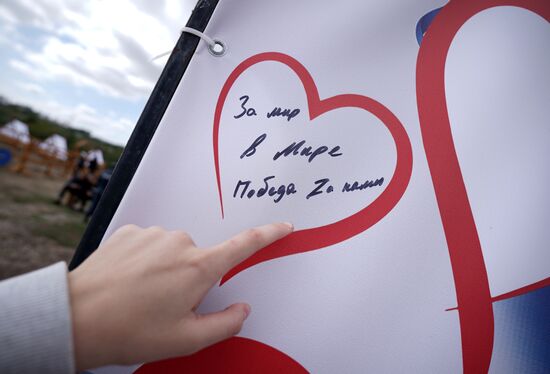 За мир
в Мире
Победа Zа нами